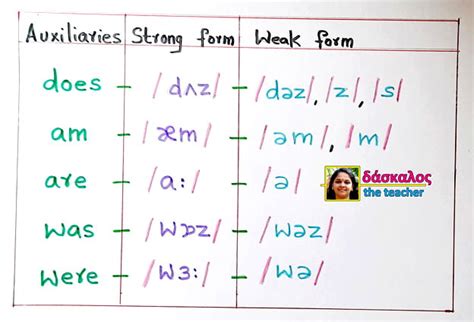 Auxiliaries Strong form Weak form
does - /dʌz/ - /dəz/, /z/, /s/
am - /æm/ - /əm/, /m/
are - /ɑ:/ - /ə/
δάσκαλος
the teacher
was - /wɒz/ - /wəz/
were - /wɜ:/ - /wə/